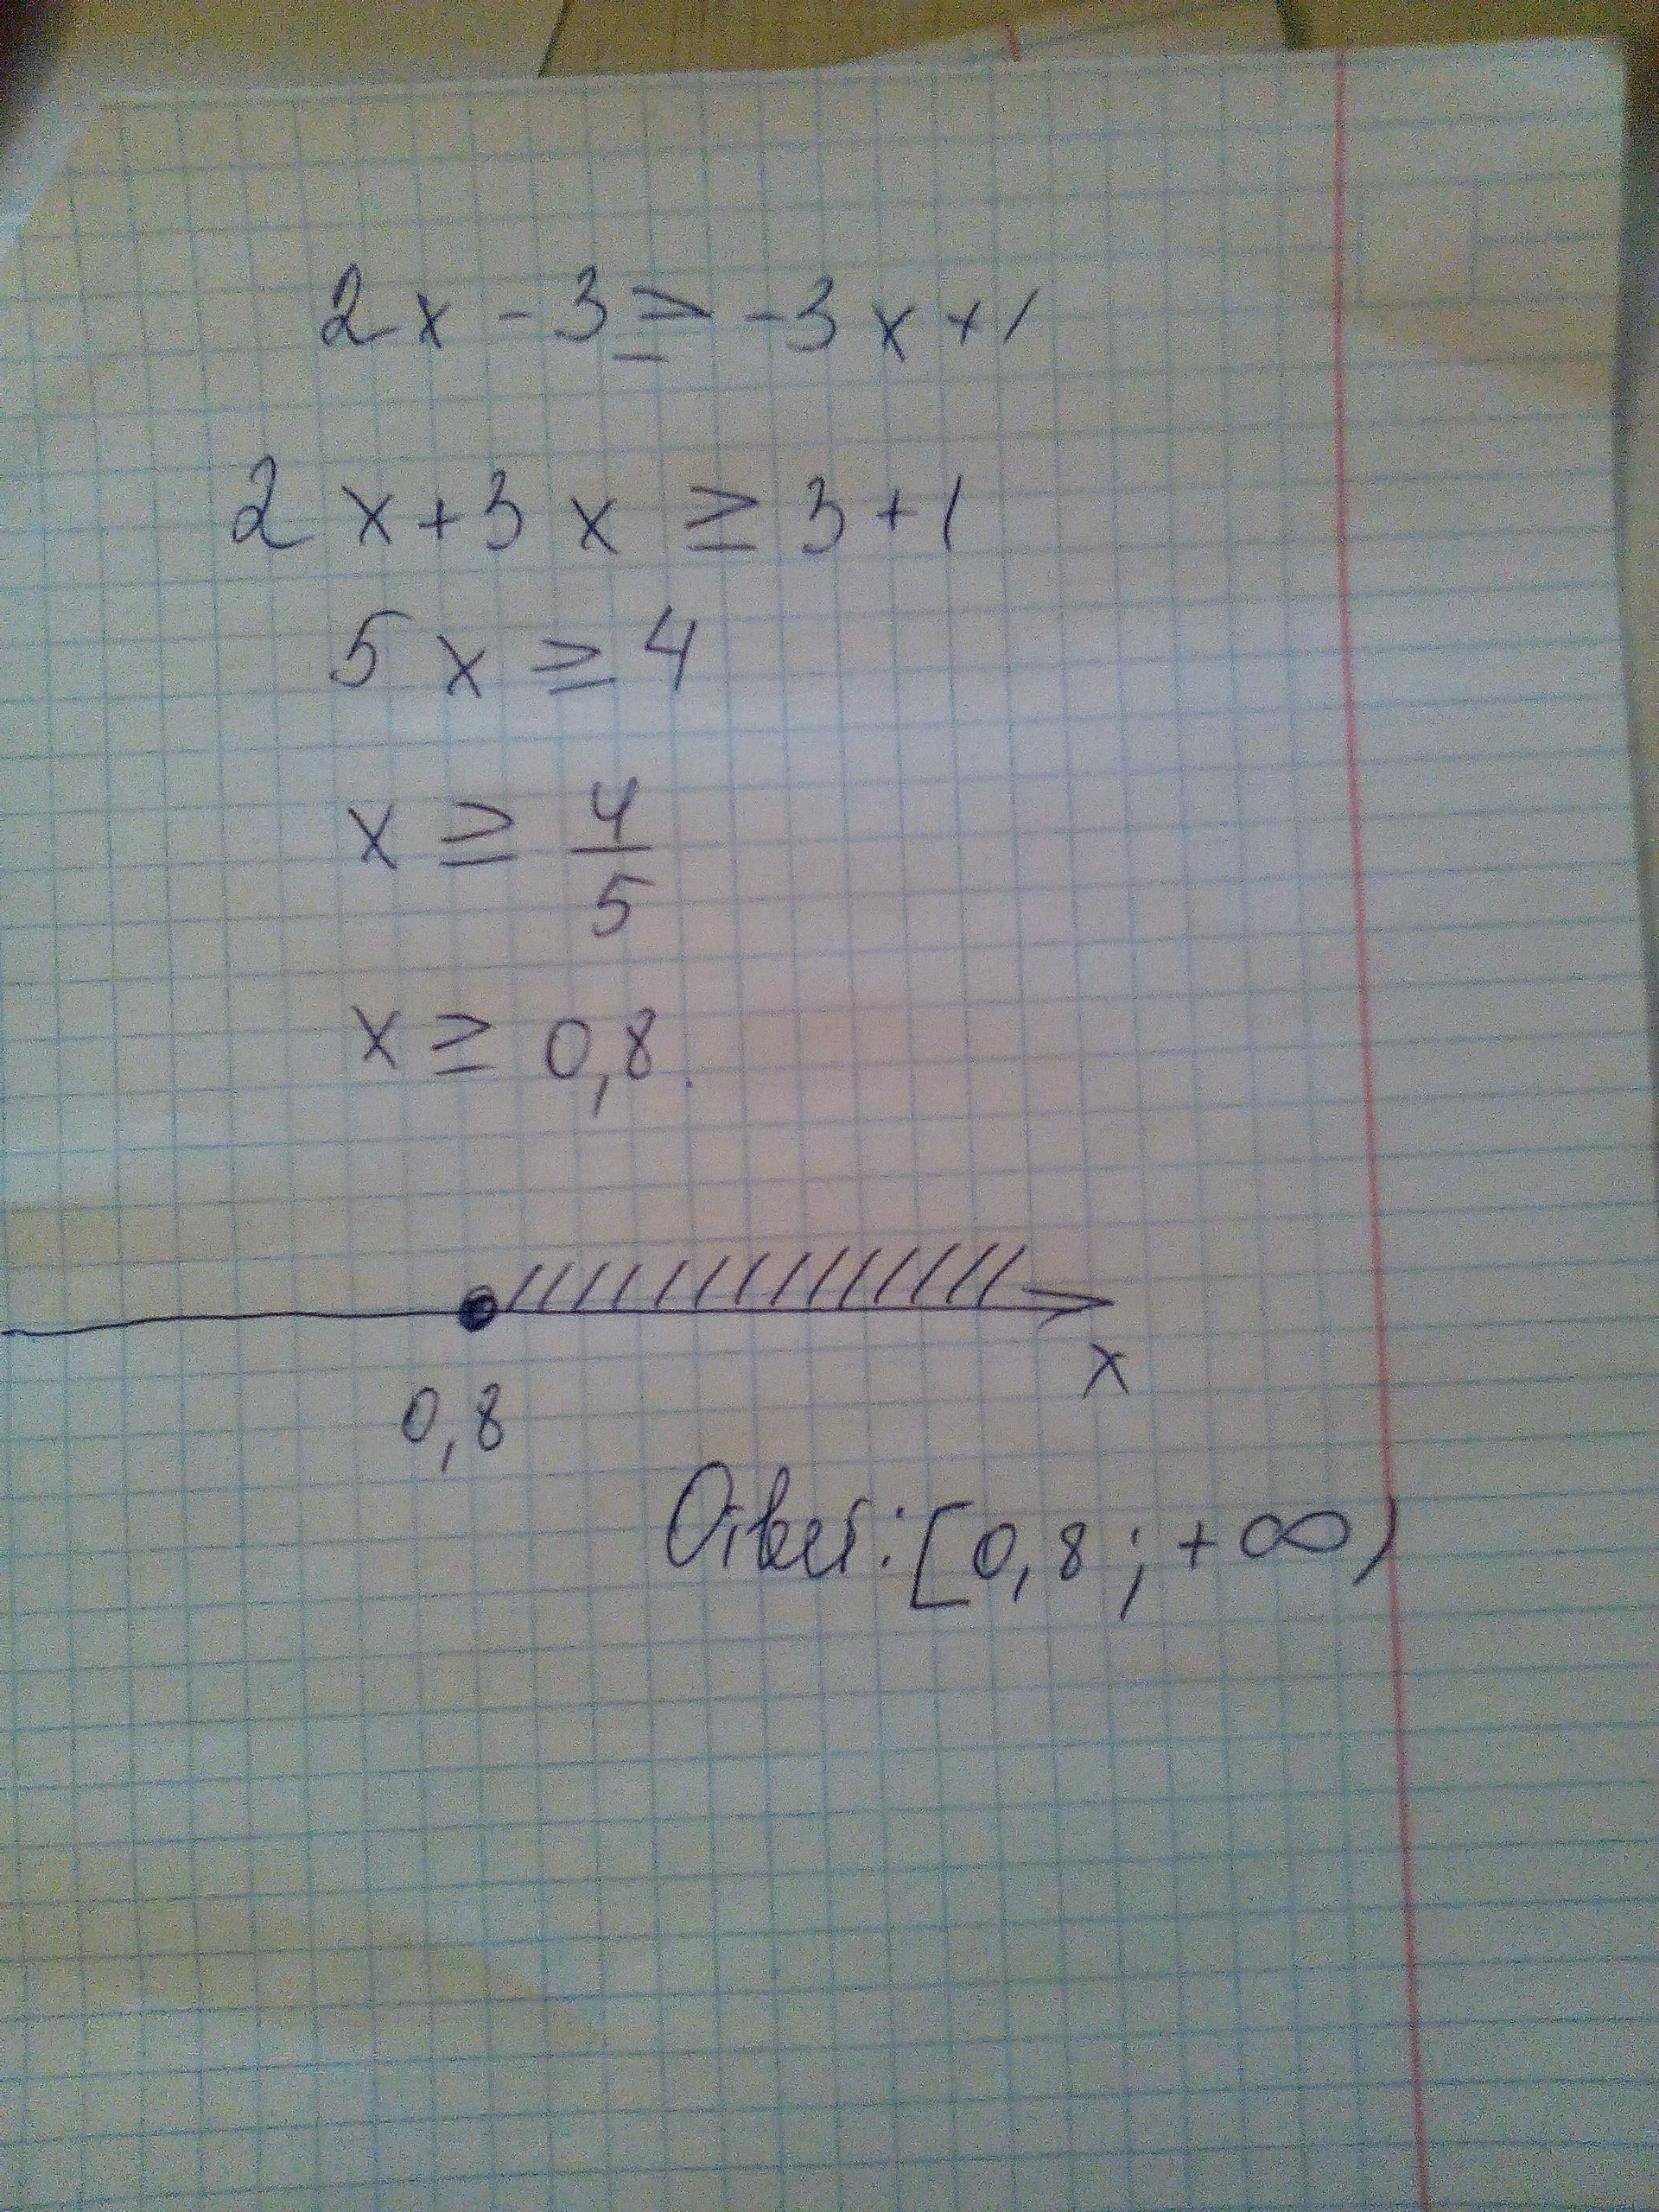 2x - 3 ≥ -3x + 1
2x + 3x ≥ 3 + 1
5x ≥ 4
x ≥ 4/5
x ≥ 0,8.
0,8
x
Ответ: [0,8; +∞)